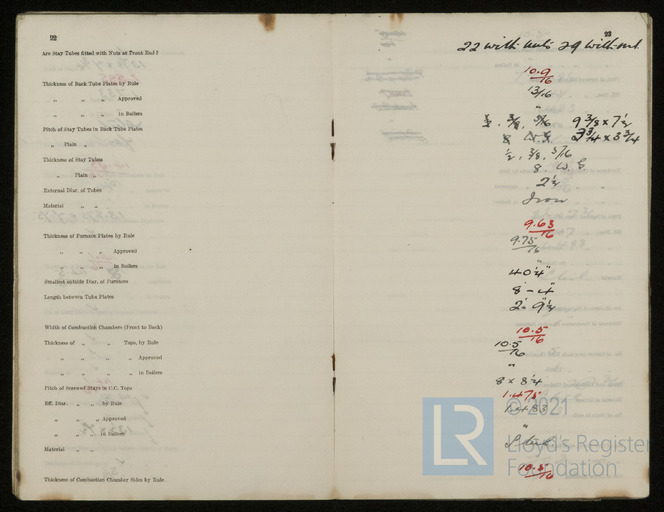 22
Are Stay Tubes fitted with Nuts at Front End?
Thickness of Back Tube Plates by Rule
„ „ „ „ Approved
„ „ „ „ in Boilers
Pitch of Stay Tubes in Back Tube Plates
„ Plain „
Thickness of Stay Tubes
„ Plain „
External Diar. of Tubes
Material „ „
Thickness of Furnace Plates by Rule
„ „ „ Approved
„ „ „ „ in Boilers
Smallest outside Diar. of Furnaces
Length between Tube Plates
Width of Combustion Chambers (Front to Back)
Thickness of „ „ Tops, by Rule
„ „ „ „ „ Approved
„ „ „ „ „ in Boilers
Pitch of Screwed Stays in C.C. Tops
Eff. Diar. „ „ by Rule
„ „ „ Approved
„ „ „ in Boilers
Material „ „
Thickness of Combustion Chamber Sides by Rule
23
22 with nuts 29 without
10.9/16
13/16
"
9 3/8 x 7 1/2
3 3/4 x 3 3/4
1/2, 3/8, 5/16
8. W. G
2 1/2
Iron
9.63/16
9.75/16
"
40 1/4"
2'- 9 1/2
10.5/16
10.5/16
"
8 x 8 1/4
1.475
1.483
"
Steel
10.5/16
© 2021
LR
Lloyd's Register
Foundation